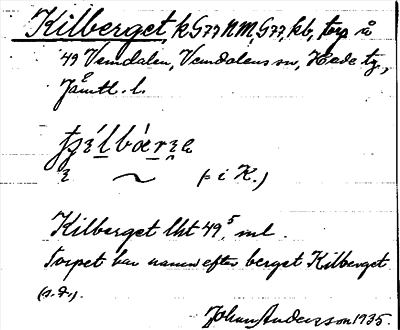 Kilberget, k G77 NM, G77, kb, torp å
49 Vemdalen, Vemdalens sn, Hede tg,
Jämtl. l.
(p i K.)
Kilberget lht 49⁵ ml.
Torpet har namn efter berget Kilberget
(s.d.).
Johan Andersson 1935.